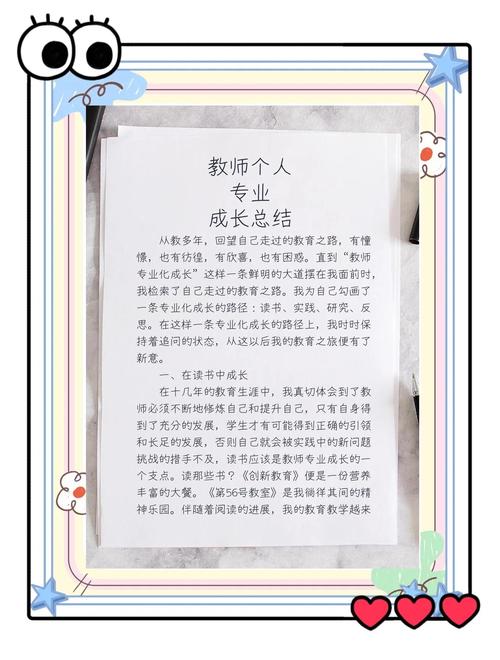 教师个人
专业
成长总结
从教多年，回望自己走过的教育之路，有憧
憬，也有彷徨，有欣喜，也有困惑。直到“教师
专业化成长”这样一条鲜明的大道摆在我面前时，
我检索了自己走过的教育之路。我为自己勾画了
一条专业化成长的路径：读书、实践、研究、反
思。在这样一条专业化成长的路径上，我时时保
持着追问的状态，从这以后我的教育之旅便有了
新意。
一、在读书中成长
在十几年的教育生涯中，我真切体会到了教
师必须不断地修炼自己和提升自己，只有自身得
到了充分的发展，学生才有可能得到正确的引领
和长足的发展，否则自己就会被实践中的新问题
挑战的措手不及，读书应该是教师专业成长的一
个支点。读那些书？《创新教育》便是一份营养
丰富的大餐。《第56号教室》是我徜徉其间的精
神乐园。伴随着阅读的进展，我的教育教学越来